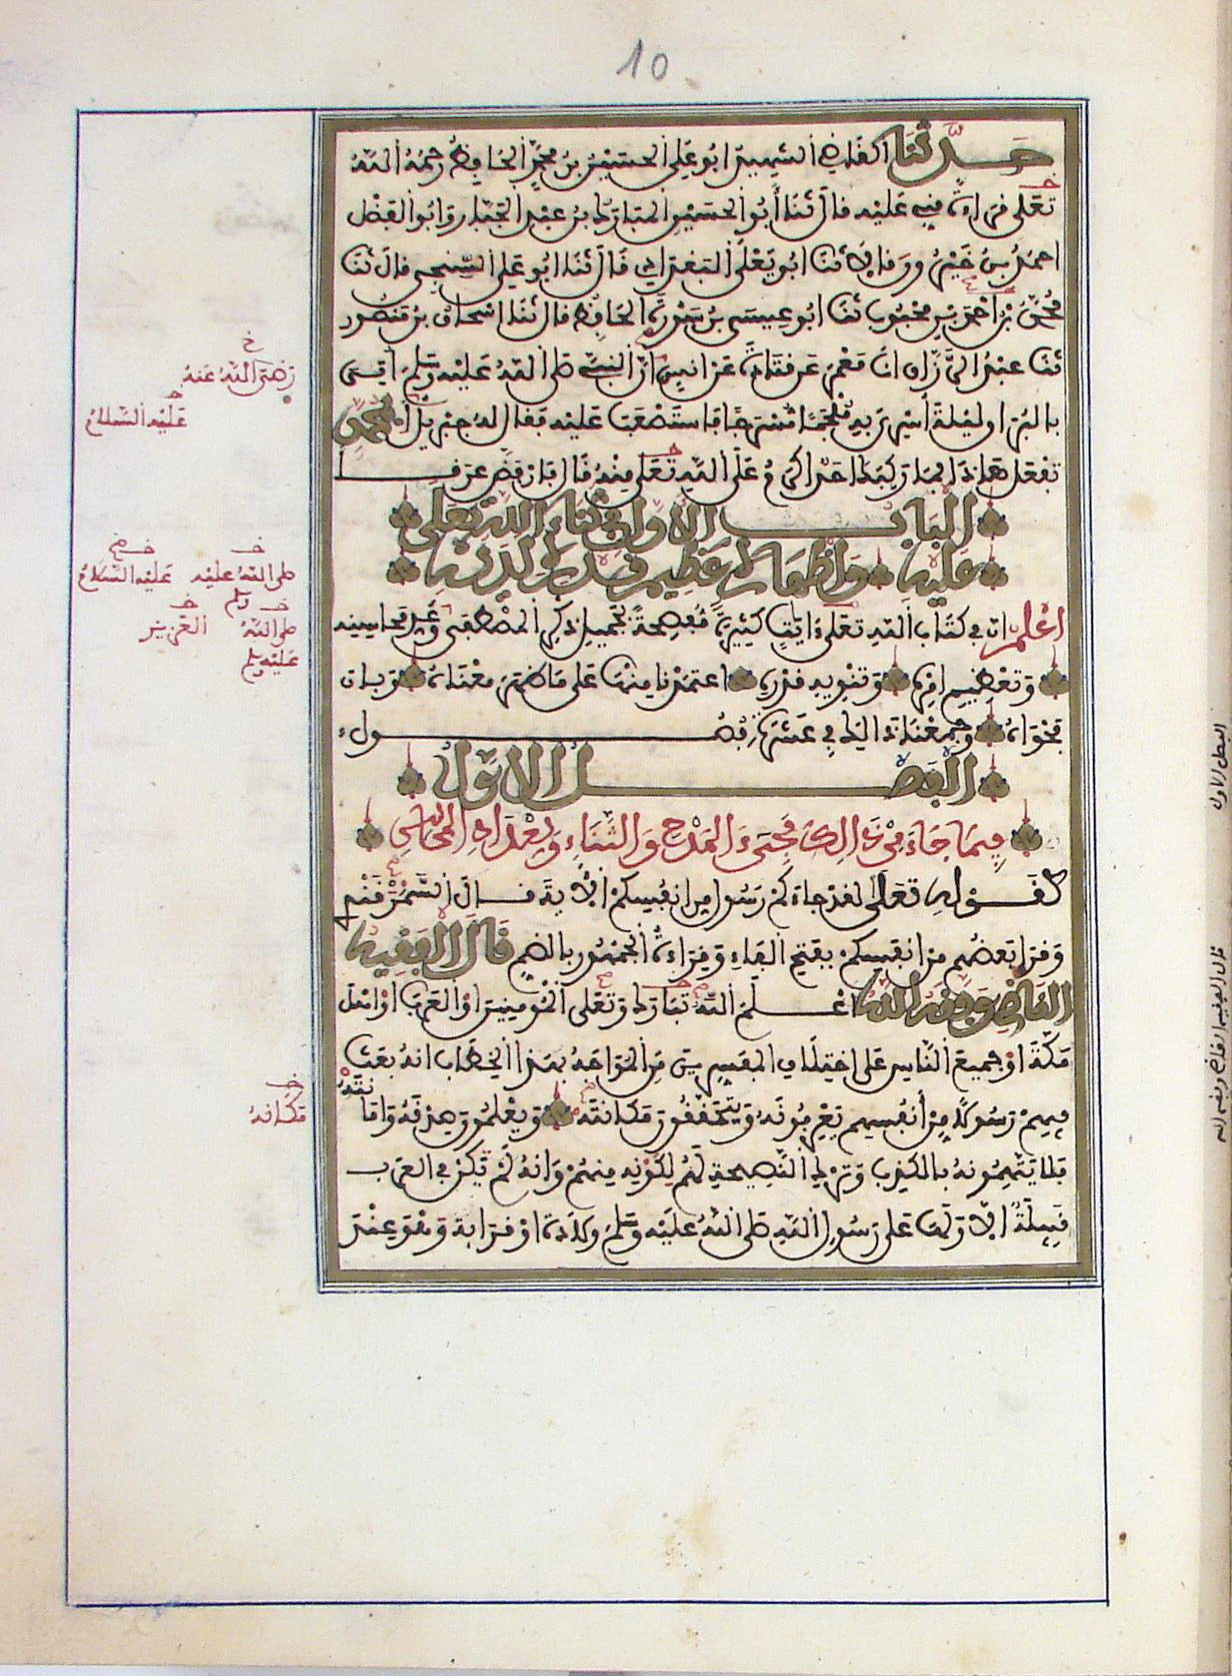 10
حدثنا القاضي الشهيد ابو علي الحسين بن محمد الحافظ رحمه الله
تعلى قراءة مني عليه قال ثنا أبو الحسين المبارك بن عبد الجبار وابو الفضل
احمد بن خيرون قالا ثنا ابو يعلى البغدادي قال ثنا ابو علي السنجي قال ثنا
محمد بن احمد بن محبوب ثنا ابو عيسى بن سورة الحافظ قال ثنا اسحاق بن منصور
ثنا عبد الرزاق انا معمر عن قتادة عن انس ان النبي صلى الله عليه وسلم اتي
بالبراق ليلة أسري به ملجما مسرجا فاستصعب عليه فقال له جبريل أبمحمد
تفعل هاذا فما ركبك احد اكرم على الله تعلى منه قال فارفض عرقا
الباب الأول في ثناء الله تعلى
عليه وإظهاره عظيم قدره لديه
اعلم ان في كتاب الله تعلى ءايات كثيرة مفصحة بجميل ذكر المصطفى وعد محاسنه
وتعظيم امره وتنويه قدره اعتمدنا منها على ما ظهر معناه وبان
فحواه وجمعنا ذالك في عشرة فصول
الفصل الاول
فيما جاء من ذالك مجيء المدح والثناء وتعداد المحاسن
كقوله تعلى لقد جاءكم رسول من انفسكم الأية قال السمرقندي
وقرأ بعضهم من انفسكم بفتح الفاء وقراءة الجمهور بالضم قال الفقيه
القاضي وفقه الله اعلم الله تبارك وتعلى المؤمنين او العرب او اهل
مكة او جميع الناس على اختلاف المفسرين من المواجه بهذا الخطاب انه بعث
فيهم رسولا من أنفسهم يعرفونه ويتحققون مكانته ويعلمون صدقه وامانته
فلا يتهمونه بالكذب وترك النصيحة لهم لكونه منهم وانه لم تكن في العرب
قبيلة الا ولها على رسول الله صلى الله عليه وسلم ولادة او قرابة وهو عند
خ
رضي الله عنه
عليه السلام
صلى الله عليه
وسلم
عليه السلام
صلى الله
عليه وسلم
العزيز
مكانه